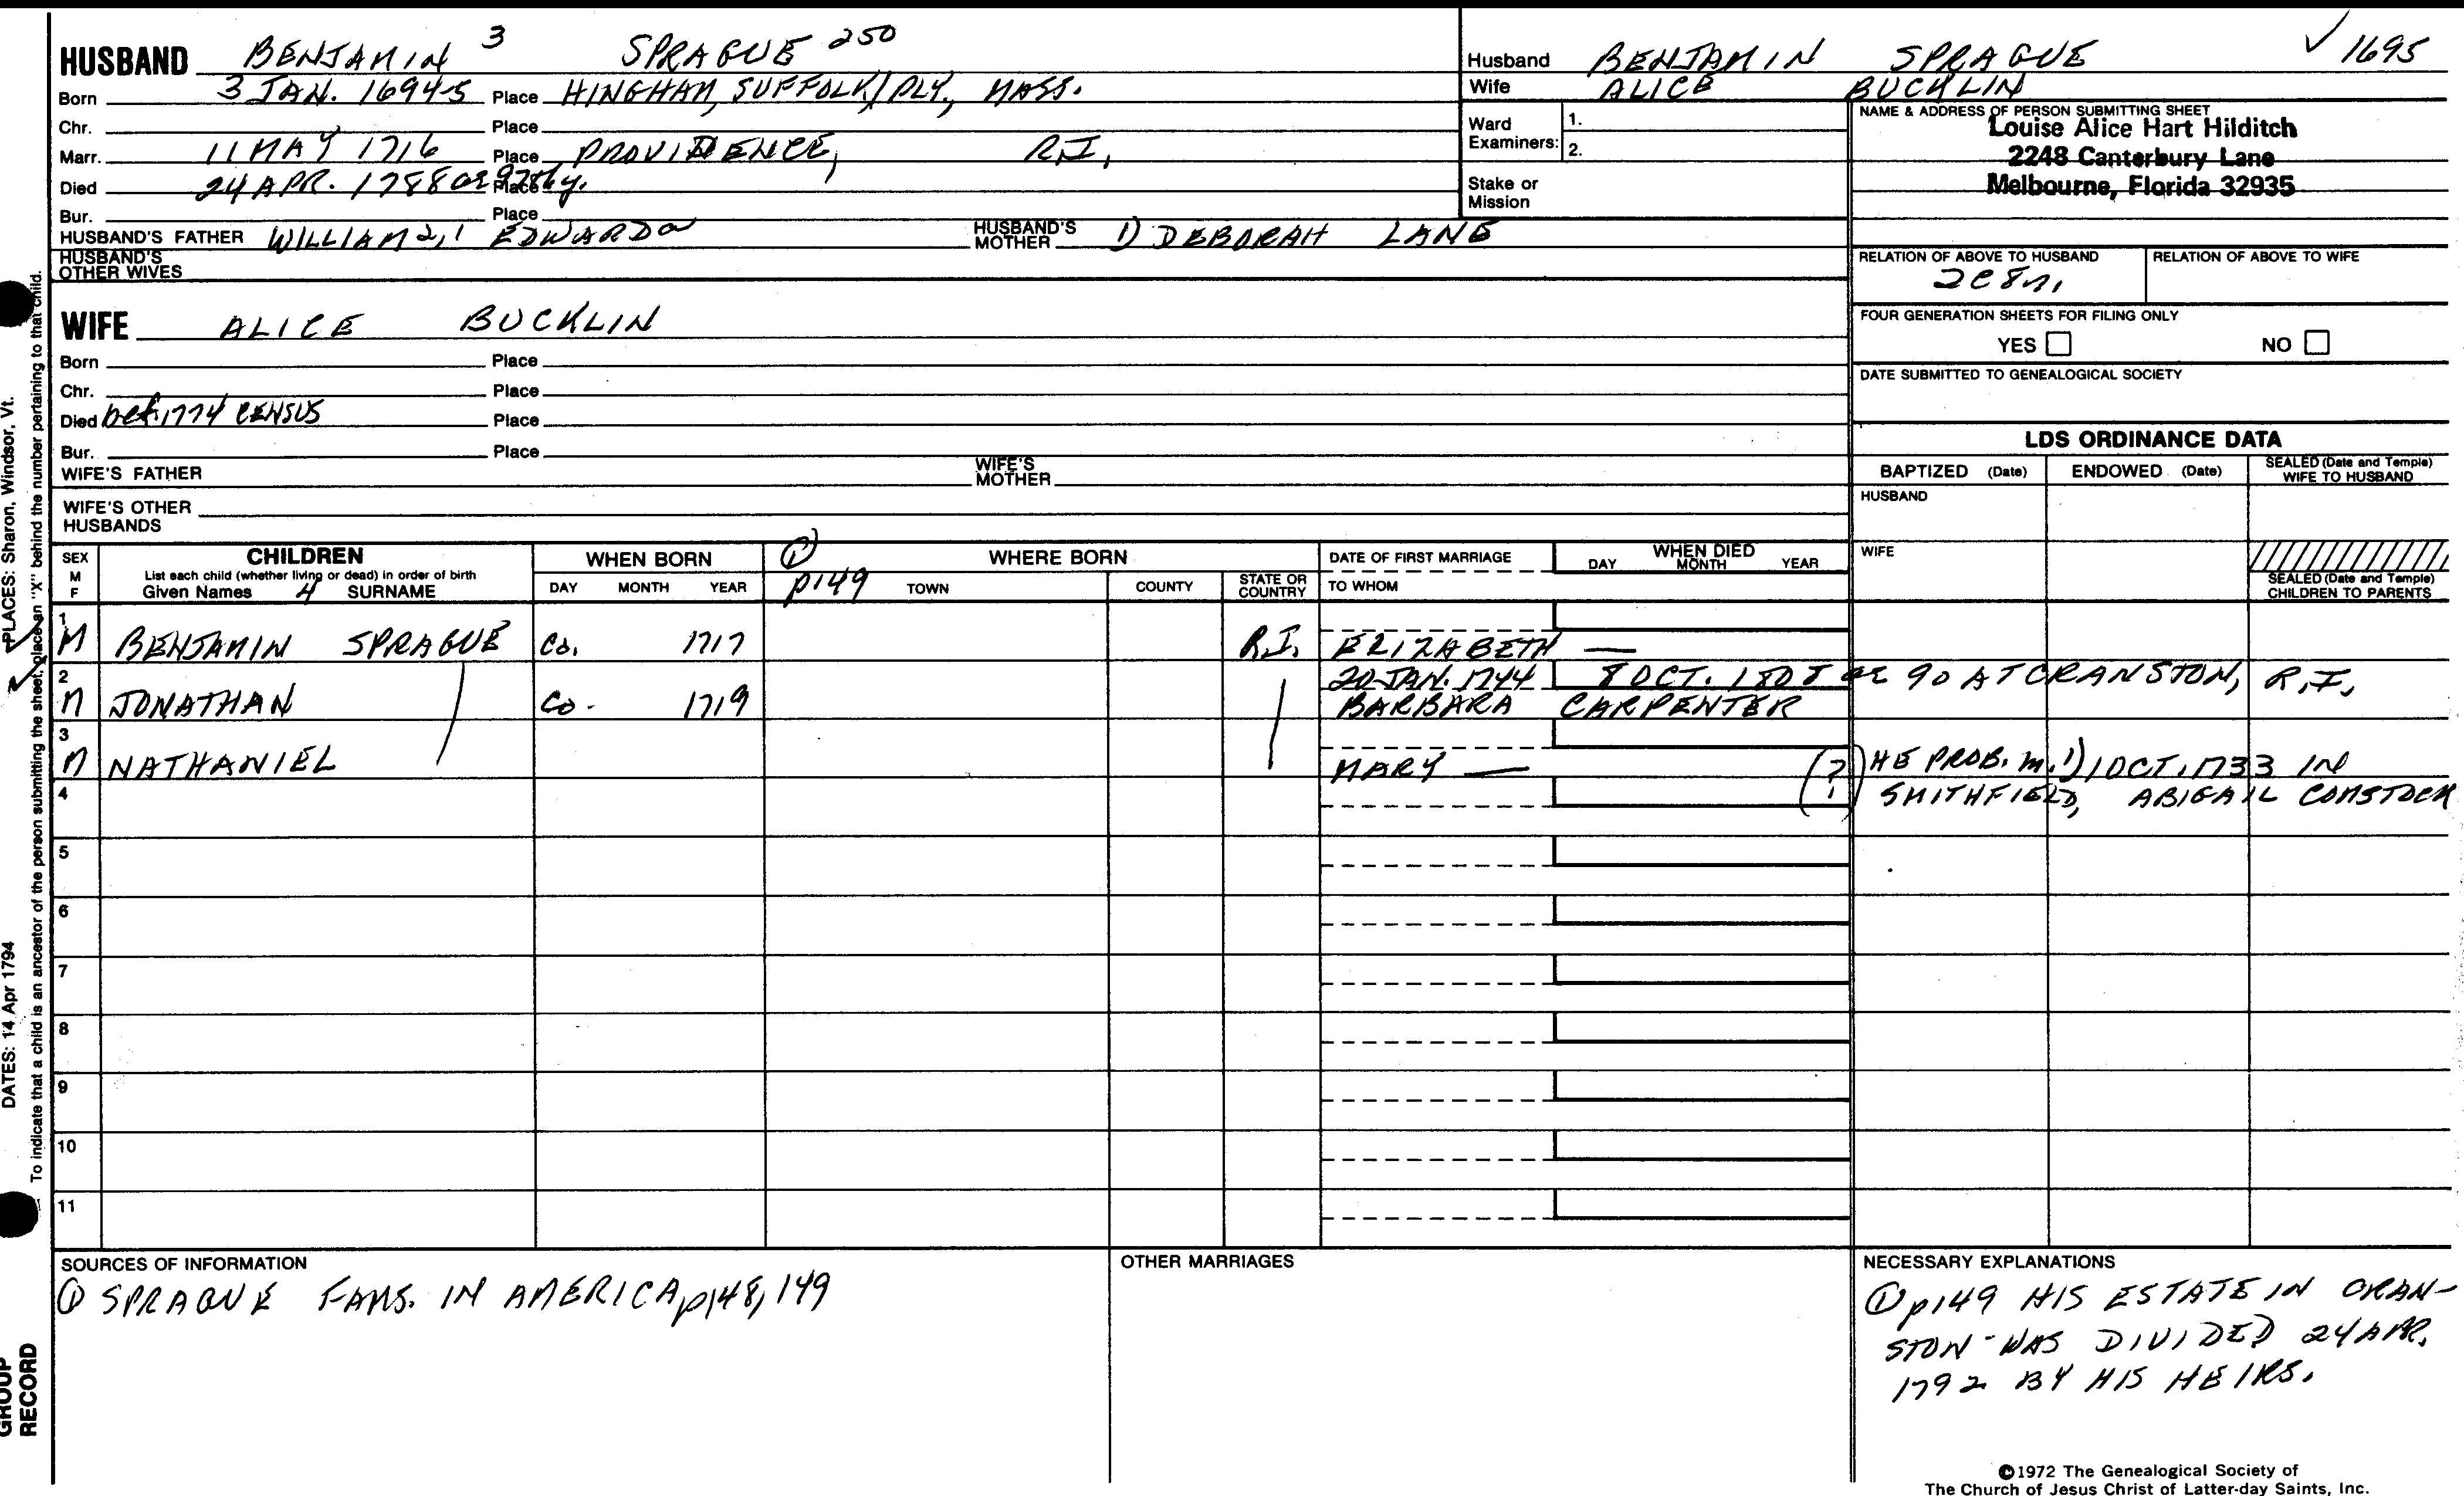 HUSBAND BENJAMIN 3 SPRAGUE 250
Born 3 JAN. 1694-5 Place HINGHAM, SUFFOLK/PLY., MASS.
Chr. Place
Marr. 11 MAY 1716 Place PROVIDENCE, R.I.
Died 24 APR. 1788 ae 97th y. Place
Bur. Place
HUSBAND'S FATHER WILLIAM 2, 1 EDWARD HUSBAND'S MOTHER 1) DEBORAH LANE
HUSBAND'S OTHER WIVES
Husband BENJAMIN SPRAGUE ✓ 1695
Wife ALICE BUCKLIN
Ward Examiners: 1.
2.
Stake or Mission
NAME & ADDRESS OF PERSON SUBMITTING SHEET
Louise Alice Hart Hilditch
2248 Canterbury Lane
Melbourne, Florida 32935
RELATION OF ABOVE TO HUSBAND RELATION OF ABOVE TO WIFE
2C8n.
FOUR GENERATION SHEETS FOR FILING ONLY
YES NO
DATE SUBMITTED TO GENEALOGICAL SOCIETY
WIFE ALICE BUCKLIN
Born Place
Chr. Place
Died bef. 1774 CENSUS Place
Bur. Place
WIFE'S FATHER WIFE'S MOTHER
WIFE'S OTHER HUSBANDS
LDS ORDINANCE DATA
BAPTIZED (Date) ENDOWED (Date) SEALED (Date and Temple) WIFE TO HUSBAND
HUSBAND
WIFE
SEALED (Date and Temple) CHILDREN TO PARENTS
SEX M F
CHILDREN
List each child (whether living or dead) in order of birth
Given Names 4 SURNAME
WHEN BORN
DAY MONTH YEAR
① p149
WHERE BORN
TOWN COUNTY STATE OR COUNTRY
DATE OF FIRST MARRIAGE
TO WHOM
WHEN DIED
DAY MONTH YEAR
1 M BENJAMIN SPRAGUE Ca. 1717 R.I. ELIZABETH —
2 M JONATHAN Ca. 1719 20 JAN. 1744 8 OCT. 1808 ae 90 AT CRANSTON, R.I.
BARBARA CARPENTER
3 M NATHANIEL MARY — (?) HE PROB. m. 1) 1 OCT. 1733 IN
4 SMITHFIELD, ABIGAIL COMSTOCK
5
6
7
8
9
10
11
SOURCES OF INFORMATION
① SPRAGUE FAMS. IN AMERICA, p148, 149
OTHER MARRIAGES
NECESSARY EXPLANATIONS
① p149 HIS ESTATE IN CRAN-
STON WAS DIVIDED 24 APR.
1792 BY HIS HEIRS.
©1972 The Genealogical Society of
The Church of Jesus Christ of Latter-day Saints, Inc.
PLACES: Sharon, Windsor, Vt.
DATES: 14 Apr 1794
To indicate that a child is an ancestor of the person submitting the sheet, place an "X" behind the number pertaining to that child.
GROUP
RECORD